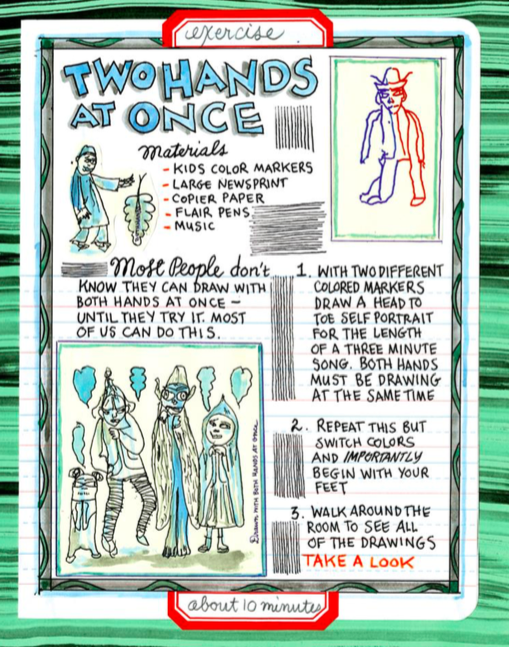 exercise.
TWO HANDS
AT ONCE
Materials
- KIDS COLOR MARKERS
- LARGE NEWSPRINT
- COPIER PAPER
- FLAIR PENS
- MUSIC
Most People don't
KNOW THEY CAN DRAW WITH
BOTH HANDS AT ONCE -
UNTIL THEY TRY IT. MOST
OF US CAN DO THIS.
DRAWN WITH BOTH HANDS AT ONCE
1. WITH TWO DIFFERENT
COLORED MARKERS
DRAW A HEAD TO
TOE SELF PORTRAIT
FOR THE LENGTH
OF A THREE MINUTE
SONG. BOTH HANDS
MUST BE DRAWING
AT THE SAME TIME
2. REPEAT THIS BUT
SWITCH COLORS
AND IMPORTANTLY
BEGIN WITH YOUR
FEET
3. WALK AROUND THE
ROOM TO SEE ALL
OF THE DRAWINGS
TAKE A LOOK
about 10 minutes